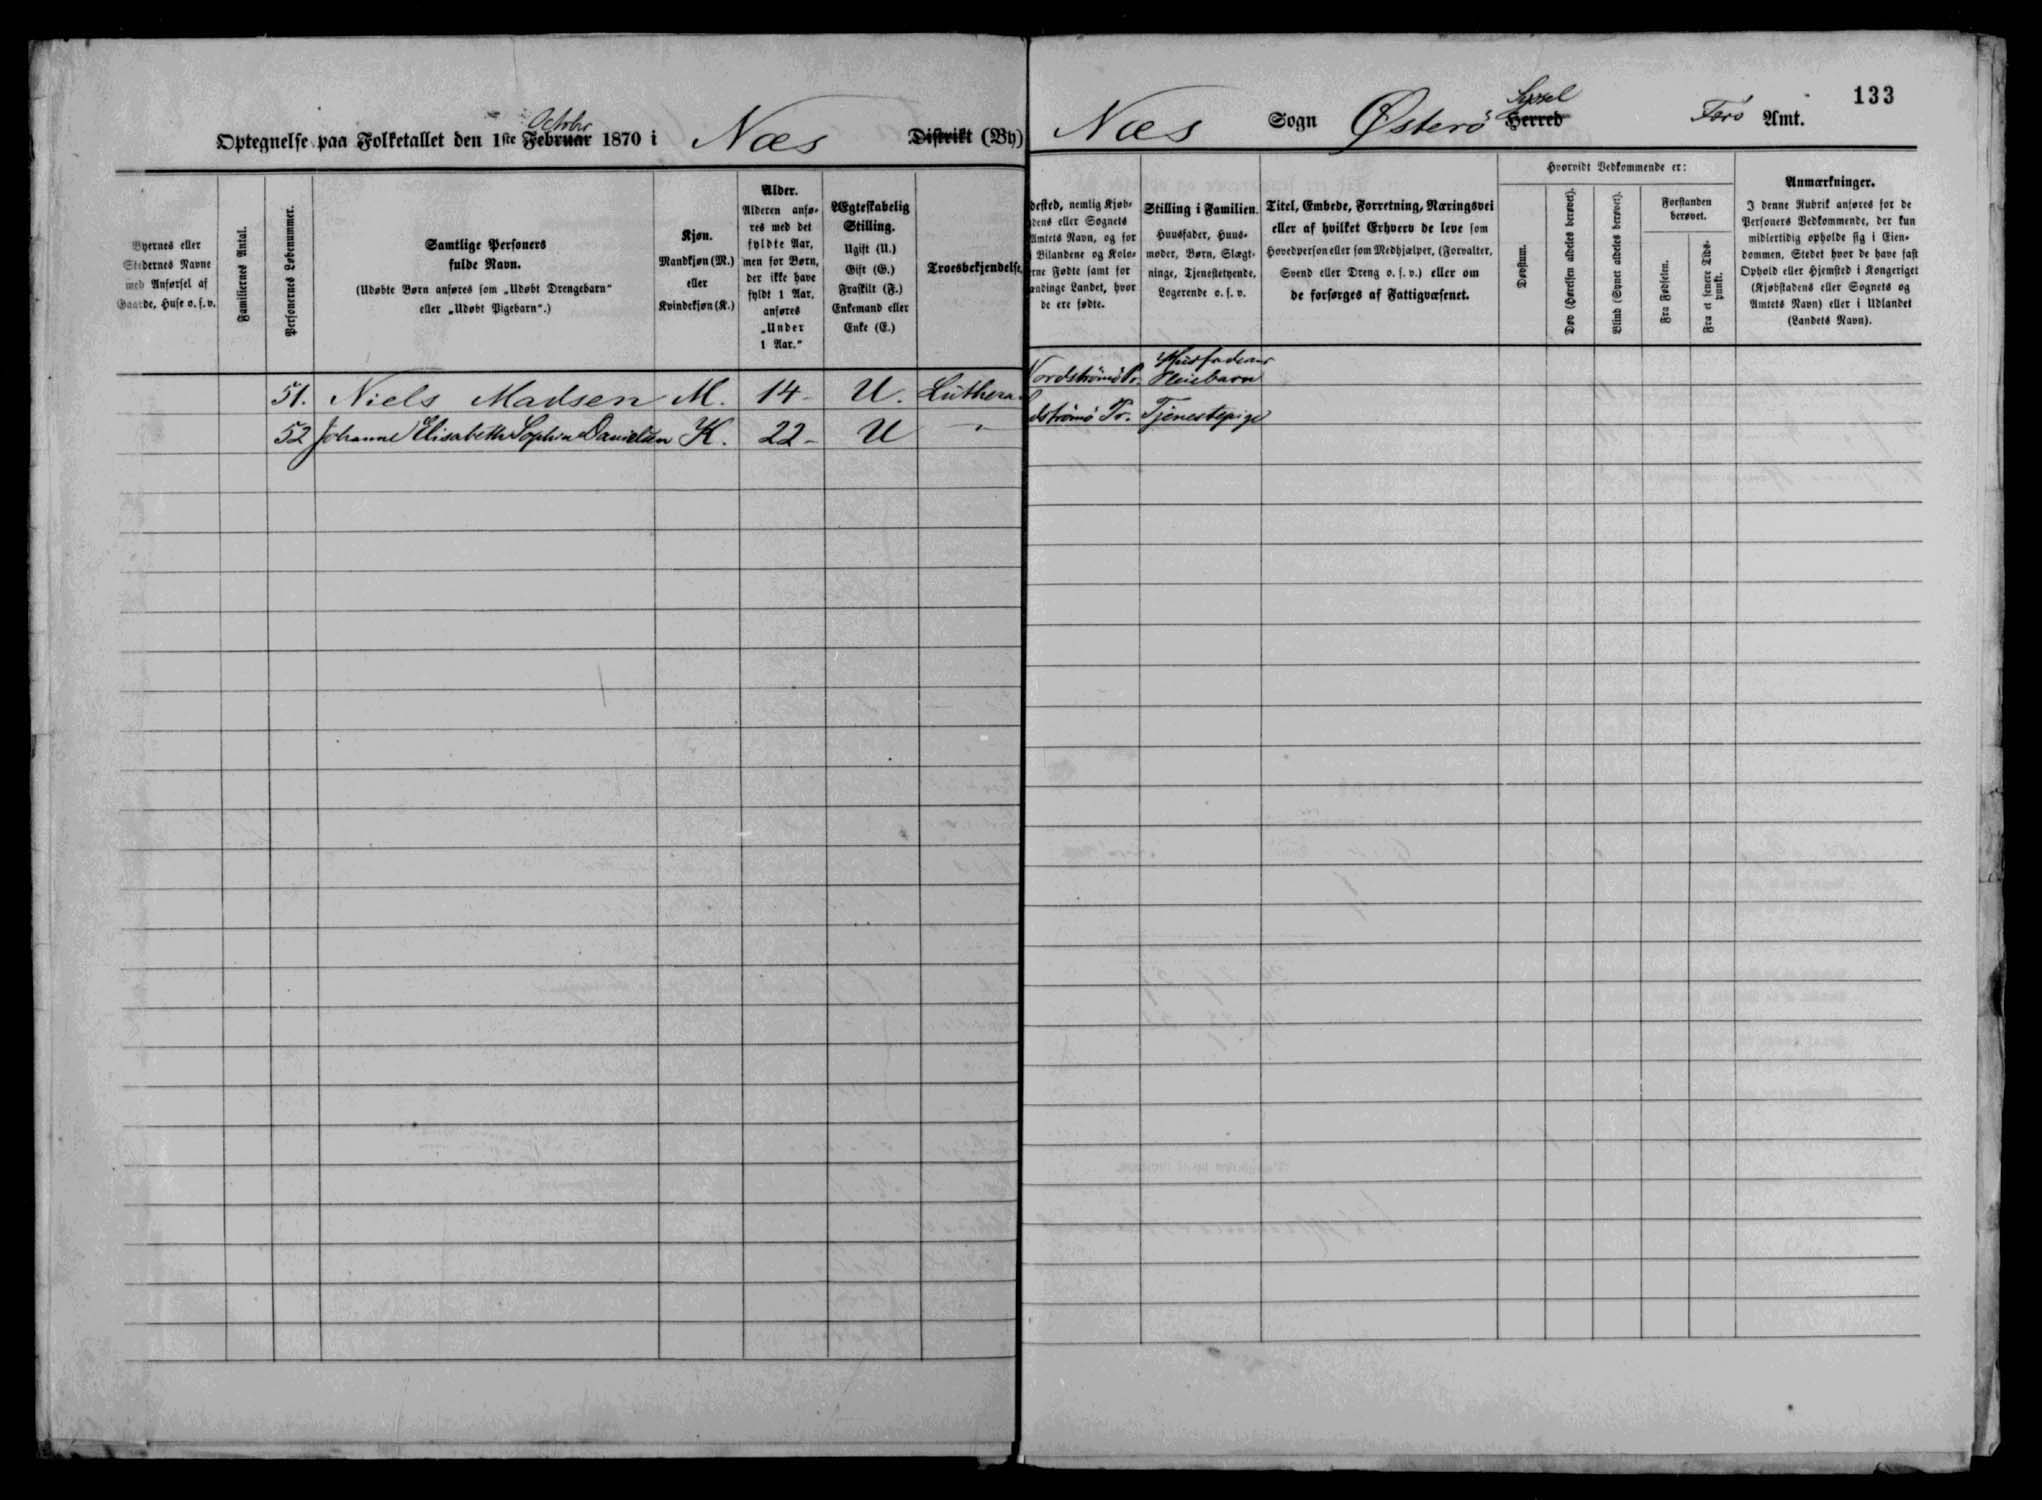 133
Optegnelse paa Folketallet den 1ste Februar October 1870 i Næs Distrikt (By)
Næs Sogn Østerö Herred Syssel Færö Amt.
Byernes eller
Stedernes Navne
med Anførsel af
Gaarde, Huse o. s. v.
Familiernes Antal.
Personernes Løbenummer.
Samtlige Personers
fulde Navn.
(Udøbte Børn anføres som „Udøbt Drengebarn“
eller „Udøbt Pigebarn“.)
Kjøn.
Mandkjøn (M.)
eller
Kvindekjøn (K.)
Alder.
Alderen anfø-
res med det
fyldte Aar,
men for Børn,
der ikke have
fyldt 1 Aar,
anføres
„Under
1 Aar.“
Ægteskabelig
Stilling.
Ugift (U.)
Gift (G.)
Fraskilt (F.)
Enkemand eller
Enke (E.)
Troesbekjendelse.
desteb, nemlig Kjøb-
dens eller Sognets
Amtets Navn, og for
i Bilandene og Kolo-
rne Fødte samt for
ændinge Landet, hvor
de ere fødte.
Stilling i Familien.
Huusfader, Huus-
moder, Børn, Slægt-
ninge, Tjenestetyende,
Logerende o. s. v.
Titel, Embede, Forretning, Næringsvei
eller af hvilket Erhverv de leve som
Hovedperson eller som Medhjælper, (Forvalter,
Svend eller Dreng o. s. v.) eller om
de forsørges af Fattigvæsenet.
Hvorvidt Vedkommende er:
Døvstum.
Døv (Hørelsen aldeles berøvet).
Blind (Synet aldeles berøvet).
Forstanden
berøvet.
Fra Fødselen.
Fra et senere Tids-
punkt.
Anmærkninger.
I denne Rubrik anføres for de
Personers Vedkommende, der kun
midlertidig opholde sig i Eien-
dommen, Stedet hvor de have fast
Ophold eller Hjemsted i Kongeriget
(Kjøbstadens eller Sognets og
Amtets Navn) eller i Udlandet
(Landets Navn).
51. Niels Madsen M. 14 - U. Luthera Nordströmö Pr. Huusfaderens Pleiebarn
52 Johanne Elisabeth Sophia Danielsen K. 22 - U - dströmö Pr. Tjenestepige